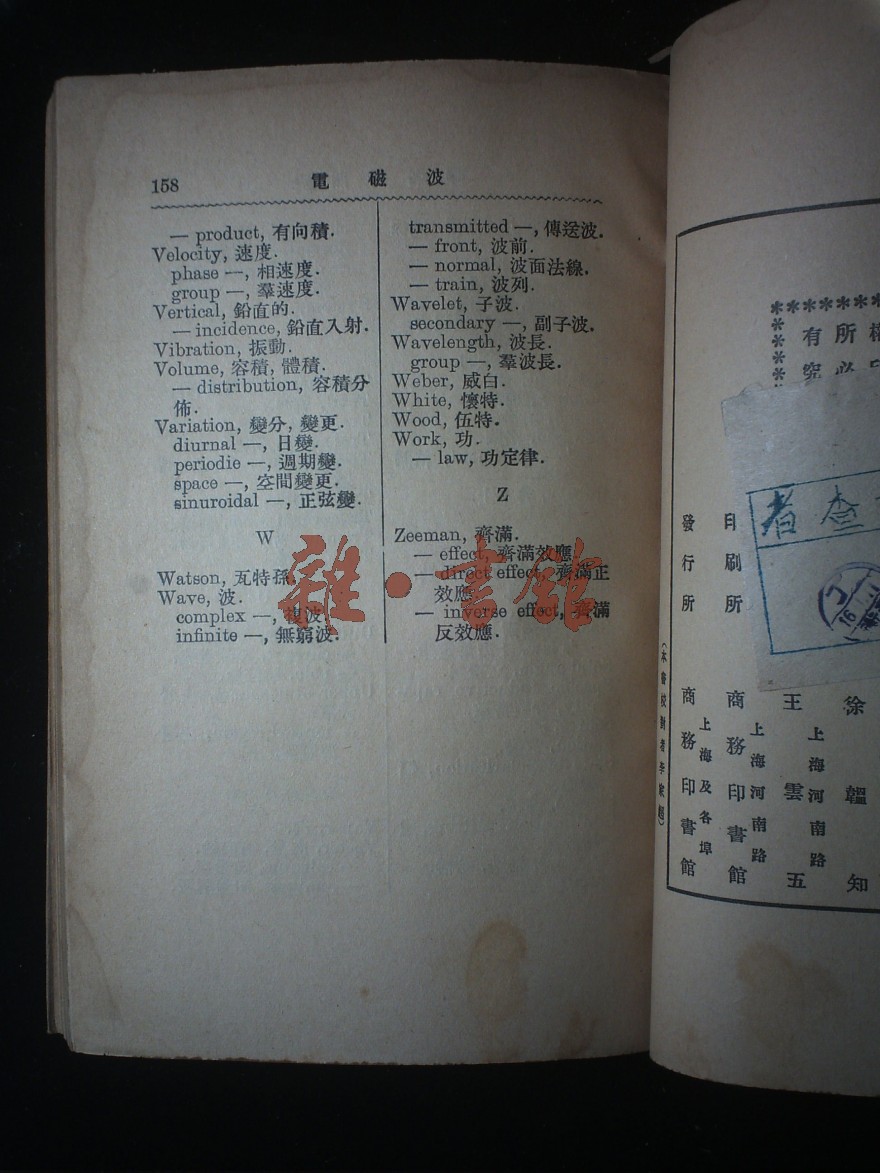 158 電磁波
— product, 有向積.
Velocity, 速度.
phase —, 相速度.
group —, 羣速度.
Vertical, 鉛直的.
— incidence, 鉛直入射.
Vibration, 振動.
Volume, 容積, 體積.
— distribution, 容積分
佈.
Variation, 變分, 變更.
diurnal —, 日變.
periodie —, 週期變.
space —, 空間變更.
sinuroidal —, 正弦變.
W
Watson, 瓦特孫.
Wave, 波.
complex —, 複波.
infinite —, 無窮波.
transmitted —, 傳送波.
— front, 波前.
— normal, 波面法線.
— train, 波列.
Wavelet, 子波.
secondary —, 副子波.
Wavelength, 波長.
group —, 羣波長.
Weber, 威白.
White, 懷特.
Wood, 伍特.
Work, 功.
— law, 功定律.
Z
Zeeman, 齊滿.
— effect, 齊滿效應.
— direct effect, 齊滿正
效應.
— inverse effect, 齊滿
反效應.
雜·書館
權所有
必究
者查
徐韞知
王雲五
上海河南路
印刷所 商務印書館
上海河南路
發行所 商務印書館
上海及各埠
(本書校對者李家超)